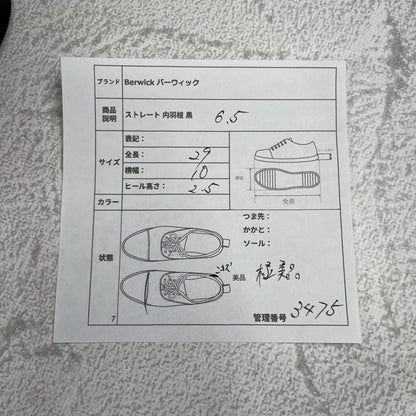 ブランド Berwick バーウィック
商品説明 ストレート 内羽根 黒 6.5
サイズ
表記：
全長： 29
横幅： 10
ヒール高さ： 2.5
全長
カラー
状態
つま先：
かかと：
ソール：
美品 極美
7
管理番号 3475